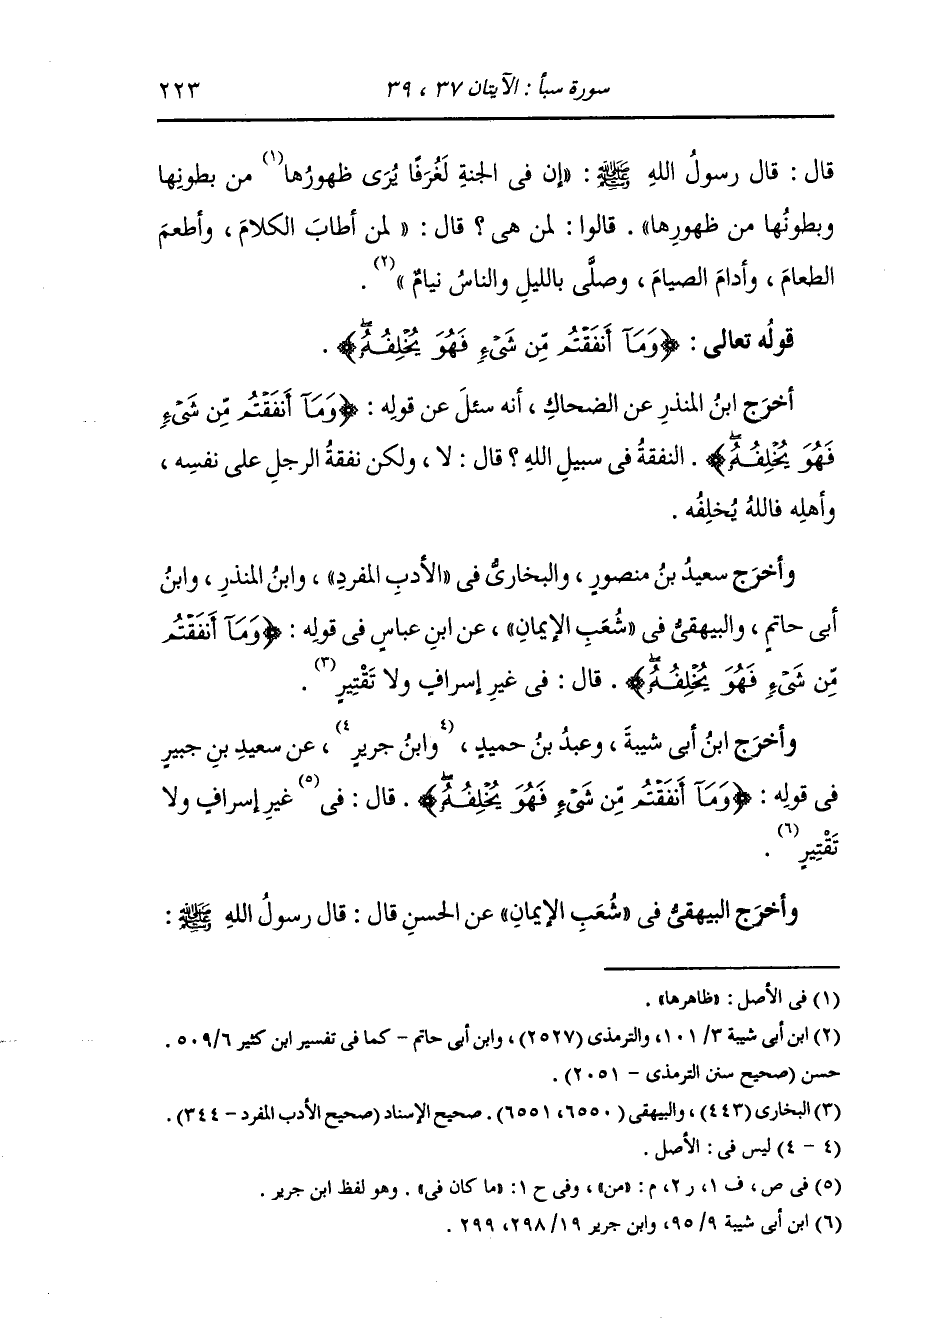 سورة سبأ : الآيتان ٣٧ ، ٣٩ ٢٢٣
قال : قال رسولُ اللهِ ﷺ : «إن فى الجنةِ لَغُرَفًا يُرَى ظهورُها(١) من بطونِها
وبطونُها من ظهورِها» . قالوا : لمن هى ؟ قال : « لمن أطابَ الكلامَ ، وأطعمَ
الطعامَ ، وأدامَ الصيامَ ، وصلَّى بالليلِ والناسُ نيامٌ »(٢) .
قولُه تعالى : ﴿وَمَآ أَنفَقۡتُم مِّن شَىۡءٖ فَهُوَ يُخۡلِفُهُۥۖ﴾ .
أخرَج ابنُ المنذرِ عن الضحاكِ ، أنه سئلَ عن قولِه : ﴿وَمَآ أَنفَقۡتُم مِّن شَىۡءٖ
فَهُوَ يُخۡلِفُهُۥۖ﴾ . النفقةُ فى سبيلِ اللهِ ؟ قال : لا ، ولكن نفقةُ الرجلِ على نفسِه ،
وأهلِه فاللهُ يُخلِفُه .
وأخرَج سعيدُ بنُ منصورٍ ، والبخارىُّ فى «الأدبِ المفردِ» ، وابنُ المنذرِ ، وابنُ
أبى حاتمٍ ، والبيهقىُّ فى «شُعَبِ الإيمانِ» ، عن ابنِ عباسٍ فى قولِه : ﴿وَمَآ أَنفَقۡتُم
مِّن شَىۡءٖ فَهُوَ يُخۡلِفُهُۥۖ﴾ . قال : فى غيرِ إسرافٍ ولا تَقْتِيرٍ(٣) .
وأخرَج ابنُ أبى شيبةَ ، وعبدُ بنُ حميدٍ ، (٤وابنُ جريرٍ٤) ، عن سعيدِ بنِ جبيرٍ
فى قولِه : ﴿وَمَآ أَنفَقۡتُم مِّن شَىۡءٖ فَهُوَ يُخۡلِفُهُۥۖ﴾ . قال : فى(٥) غيرِ إسرافٍ ولا
تَقْتِيرٍ(٦) .
وأخرَج البيهقىُّ فى «شُعَبِ الإيمانِ» عن الحسنِ قال : قال رسولُ اللهِ ﷺ :
(١) فى الأصل : «ظاهرها» .
(٢) ابن أبى شيبة ٣/ ١٠١، والترمذى (٢٥٢٧) ، وابن أبى حاتم - كما فى تفسير ابن كثير ٥٠٩/٦ .
حسن (صحيح سنن الترمذى - ٢٠٥١) .
(٣) البخارى (٤٤٣) ، والبيهقى (٦٥٥٠، ٦٥٥١) . صحيح الإسناد (صحيح الأدب المفرد - ٣٤٤) .
(٤ - ٤) ليس فى : الأصل .
(٥) فى ص ، ف ١، ر ٢، م : «من» ، وفى ح ١: «ما كان فى» . وهو لفظ ابن جرير .
(٦) ابن أبى شيبة ٩/ ٩٥، وابن جرير ١٩/ ٢٩٨، ٢٩٩ .